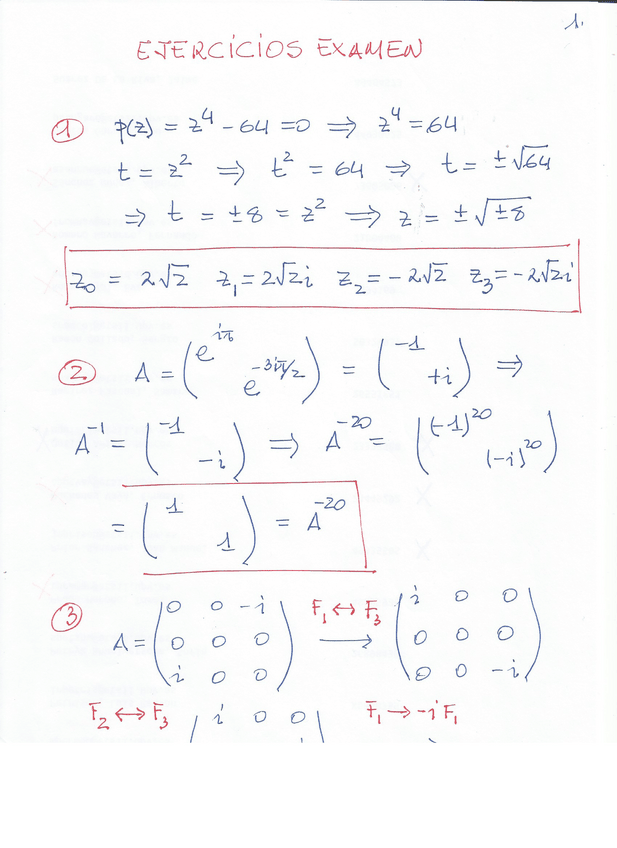 1.
EJERCICIOS EXAMEN
① p(z) = z⁴ - 64 = 0 ⟹ z⁴ = 64
t = z² ⟹ t² = 64 ⟹ t = ±√64
⟹ t = ±8 = z² ⟹ z = ±√±8
z₀ = 2√2 z₁ = 2√2i z₂ = -2√2 z₃ = -2√2i
② A = (e^{iπ} e^{-3iπ/2}) = (-1 +i) ⟹
A⁻¹ = (-1 -i) ⟹ A⁻²⁰ = ((-1)²⁰ (-i)²⁰)
= (1 1) = A⁻²⁰
③ A = (0 0 -i F₁ ↔ F₃ (i 0 0
0 0 0 ⟶ 0 0 0
i 0 0) 0 0 -i)
F₂ ↔ F₃ (i 0 0 F₁ → -i F₁